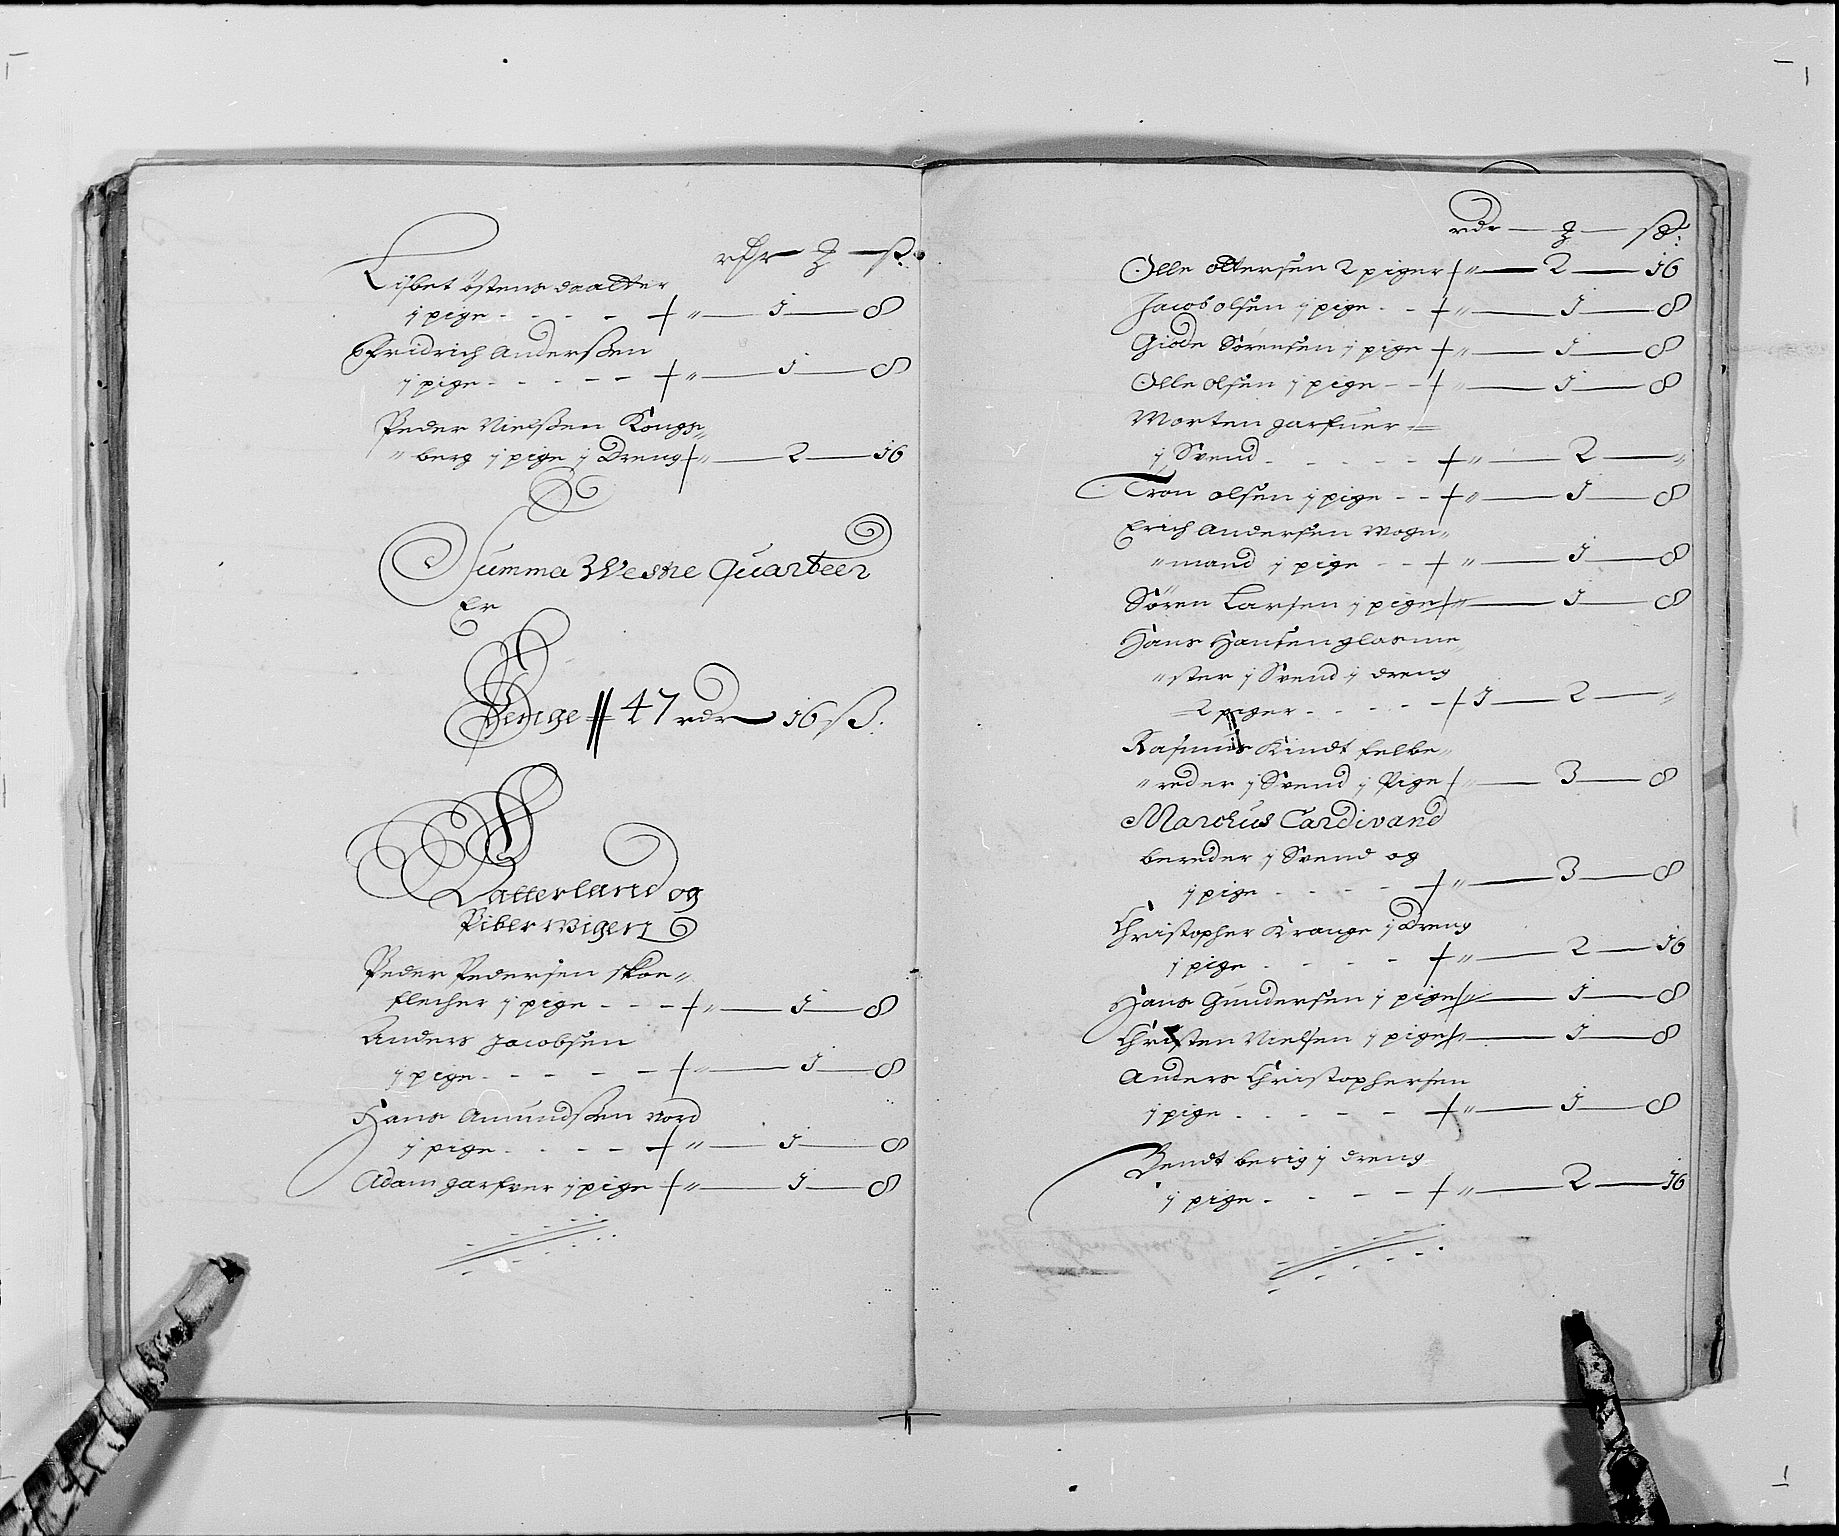 rdr — — ß.
Lisbet östens daatter
j pige - - - - + „ — j — 8
Fridrich Anderßen
j pige - - - - - + „ — j — 8
Peder Nielßen Kongs„
„berg j pige j Dreng + „ — 2 — j6
Summa Westre Quarteer
Er
Penge # 47 rdr j6 ß.
Vatterland og
Piberwigen
Peder Pedersen skoe„
flecher j pige - - - + „ — j — 8
Anders Jacobsen
j pige - - - - - + „ — j — 8
Hans Amundßen Nord
j pige - - - - + „ — j — 8
Adam garfver j pige + „ — j — 8
rdr — — ß:
Olle ottersen 2 piger + „ — 2 — j6
Jacob olsen j pige - - + „ — j — 8
Giöde Sörensen j pige + „ — j — 8
Olle olsen j pige - - + „ — j — 8
Morten garfuer =
j Svend - - - - - + „ — 2 — „
Tron olsen j pige - - + „ — j — 8
Erich Andersen Wogn„
„mand j pige - - + „ — j — 8
Sören Larsen j pige + „ — j — 8
Hans Hansen glasme„
„ster j Svend j dreng
2 piger - - - - - + j — 2 — „
Rasmus Kindt felbe„
„reder j Svend j Pige + „ — 3 — 8
Marchus Cardivand
bereder j Svend og
j pige - - - - + „ — 3 — 8
Christopher Krange j Dreng
j pige - - - - + „ — 2 — j6
Hans Gundersen j pige + „ — j — 8
Christen Nielsen j pige + „ — j — 8
Anders Christophersen
j pige - - - - - + „ — j — 8
Bendt berig j dreng
j pige - - - - + „ — 2 — j6